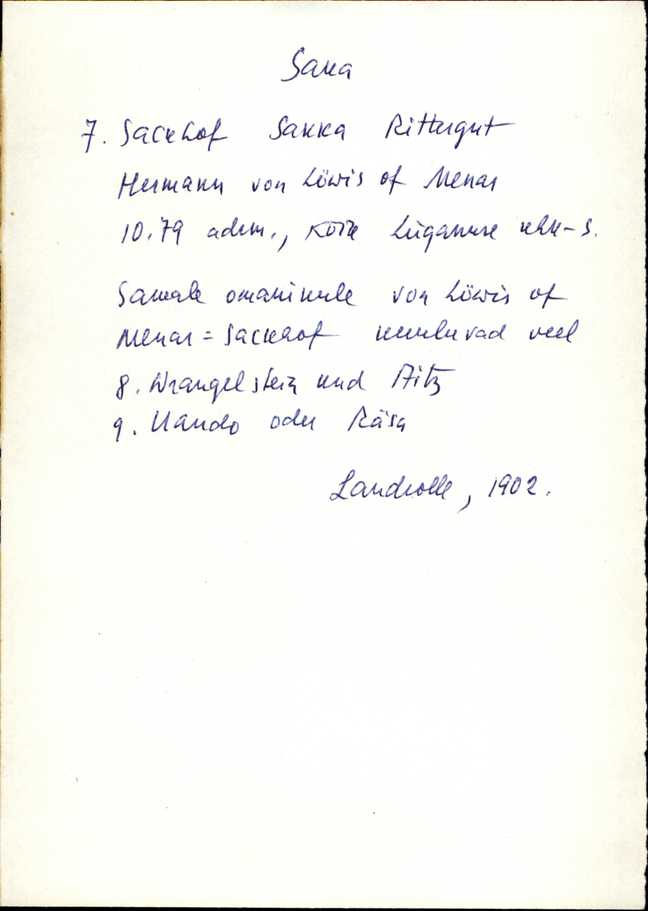 Saka
7. Sackhof Sakka Rittergut
Hermann von Löwis of Menar
10.79 adrm., kõik Lüganuse khk-s.
Samale omanikule von Löwis of
Menar = Sackhof kuuluvad veel
8. Wrangelstein und Aitz
9. Uando oder Räsa
Landrolle, 1902.